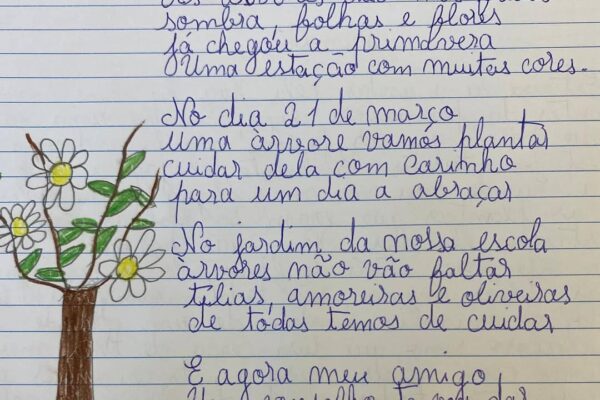 sombra, folhas e flores
já chegou a primavera
Uma estação com muitas cores.
No dia 21 de março
uma àrvore vamos plantar
cuidar dela com carinho
para um dia a abraçar
No jardim da nossa escola
àrvores não vão faltar
tílias, amoreiras e oliveiras
de todas temos de cuidar
E agora meu amigo